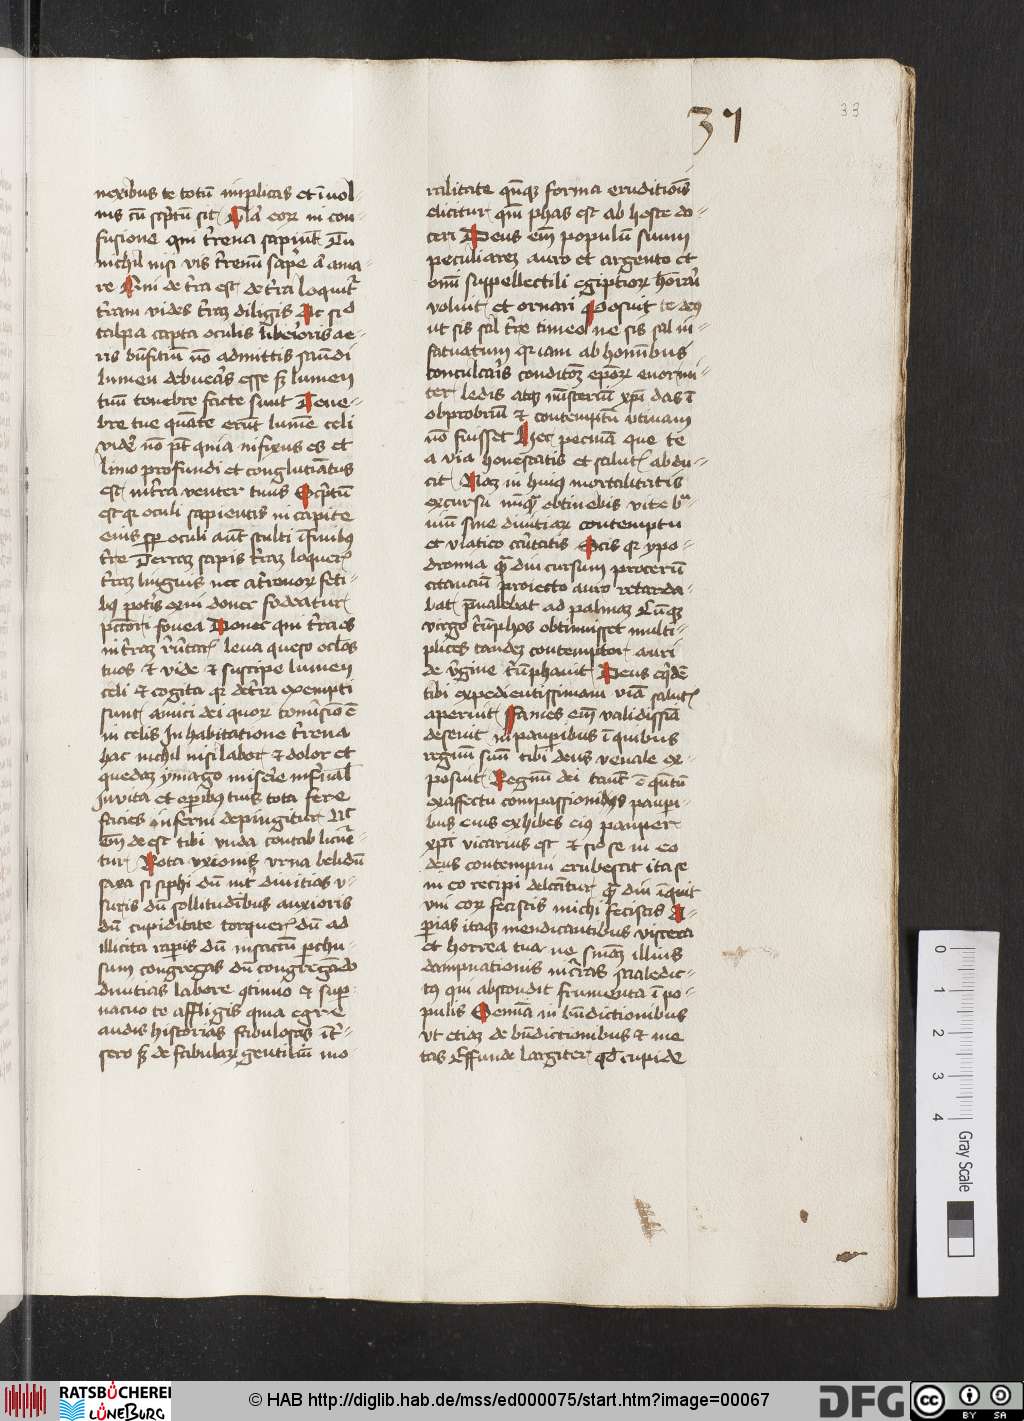 37
33
nexibus te totū implicas et ī uol
uis cū sc̄ptū sit Gl̄a eoꝝ in con-
fusione qui tr̄rena sapiūt Tu
nichil nisi vis tr̄renū sape aut ama-
re Qui de tr̄ra est de tr̄ra loquitᷣ
tr̄ram vides tr̄aꝫ diligis Ac sic
talpa capta oculis liberioris ae-
ris bn̄ficiū nō admittis
lumen debueras esse sꝫ lumen
tuū tenebre facte sunt Tene-
bre tue quāte erūt lumē celi
videre nō pt̄ quia infixus es et
limo profundi et conglutiatus
est in tr̄ra venter tuus Scͥptū
est qꝛ oculi sapientis in capite
eius sp̄ oculi aūt stulti ī finibꝰ
tr̄re Terraꝫ sapis tr̄aꝫ loqueris
tr̄aꝫ linguis nec a feti-
bꝰ potis exui donec fodeatur
pcc̄tori fouea Donec qui tr̄ra es
in tr̄raꝫ Leua queso oc̄los
tuos et vide et suscipe lumen
celi et cogita qꝛ de tr̄ra exempti
sunt amici dei quoꝝ ē
in celis In habitatione tr̄rena
hac nichil nisi labor et dolor et
quedaꝫ ymago misere
In vita et operibꝰ tuis tota fere
facies inferni depingitur Nec
deest tibi vnda
tur Rota yxionis vrna belidū
saxa sisiphi dū divitias v-
suris dū sollicitudībus anxioris
dū cupiditate torqueris dū ad
illicita raperis dū perhu-
sum congregas dū congregādo
divitias labore cōtinuo et super
uacuo te affligis qui egre
audis historias fabulosas
sero sꝫ de fabulaꝝ gentiliū mo-
ralitate qn̄qꝫ forma eruditiōis
elicitur qm̄ phas est ab hoste do-
ceri Deus em̄ populū suum
peculiareꝫ auro et argento et
omī suppellectili egiptioꝝ
voluit et ornari Posuit te deꝰ
ut sis sal tr̄re timeo ne sis sal in-
fatuatum qꝛ iam ab hominibus
conculcaris ep̄oꝝ enormi-
ter ledis atqꝫ misteriū xp̄i das ī
obprobriū et contemptū vtinam
nō fuisset Hec pecunia que te
a via honestatis et salutis abdu-
cit Naꝫ in huiꝰ mortalitatis
excursu nūquā obtinebis vite
uiū sine divitiaꝝ contemptu
et viatico Scis qꝛ ypo-
dromia quā diu cursum procerū
proiecto auro retarda-
bat preualebat ad palmaꝫ Cūqꝫ
virgo triūphos obtinuisset multi-
plices tandeꝫ contemptor auri
de virgine triūphauit Deus eidē
tibi expedientissimam viā salutis
aperuit Fames em̄ validissīa
deseruit in pauperibus ī quibus
regnū suū tibi deus venale ex-
posuit Regnū dei tanti ē quantū
ex affectu compassionis paupi-
bus eius exhibes eiꝰ pauper
xp̄i vicarius est et sic se in eo
deus contempni erubescit ita se
in eo recipi delectatur quā diu inquit
vni eoꝝ fecistis michi fecistis A-
perias itaqꝫ mendicantibus viscera
et horrea tua ne illius
dampnationis incͥras maledic-
tꝰ qui abscondit frumenta ī po-
pulis Semīa in bn̄dictionibus
vt etiaꝫ de bn̄dictionibus et me-
tas Effunde largiter qd̄ cupide
0
1
2
3
4
Gray Scale
RATSBÜCHEREI LÜNEBURG
© HAB http://diglib.hab.de/mss/ed000075/start.htm?image=00067
DFG
CC BY SA